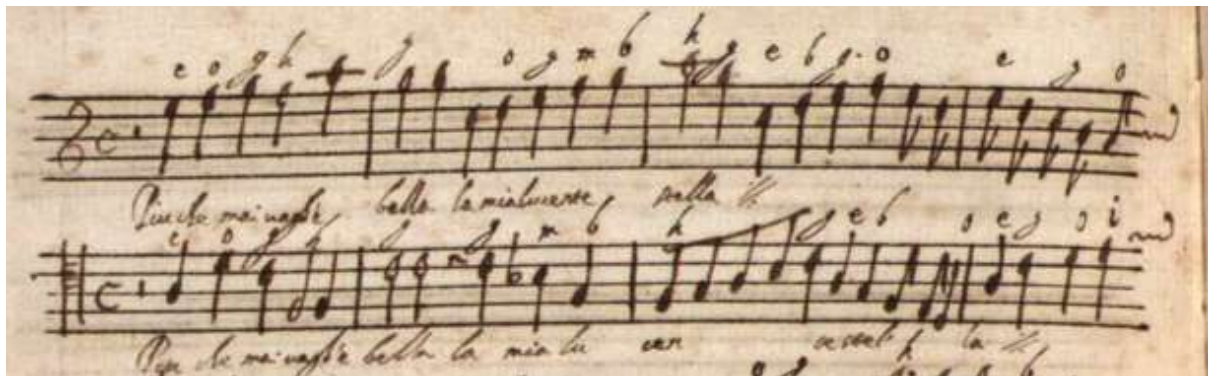 e o g h g o g m b h g e b g o e g o
Piu che mai vagh'e bella la mia lucente stella
e o g h g g m b h g e b o e g o i
Piu che mai vagh'e bella la mia lu cen te stel la